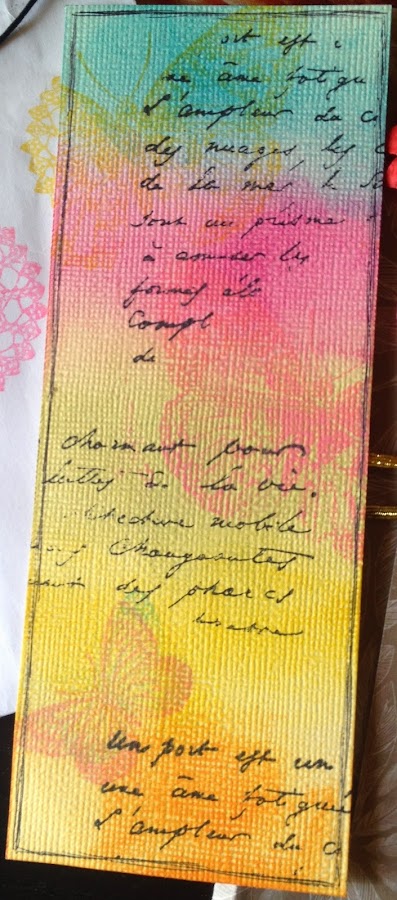 ort est
ne âme fatigu
L'ampleur du c
des nuages, les c
de la mer, le
sont un prisme
à amuser les
formes élo
compl
de
charmant pour
luttes de la vie.
itecture mobile
changeantes
des phares
Un port est un
une âme fatiguée
L'ampleur du c